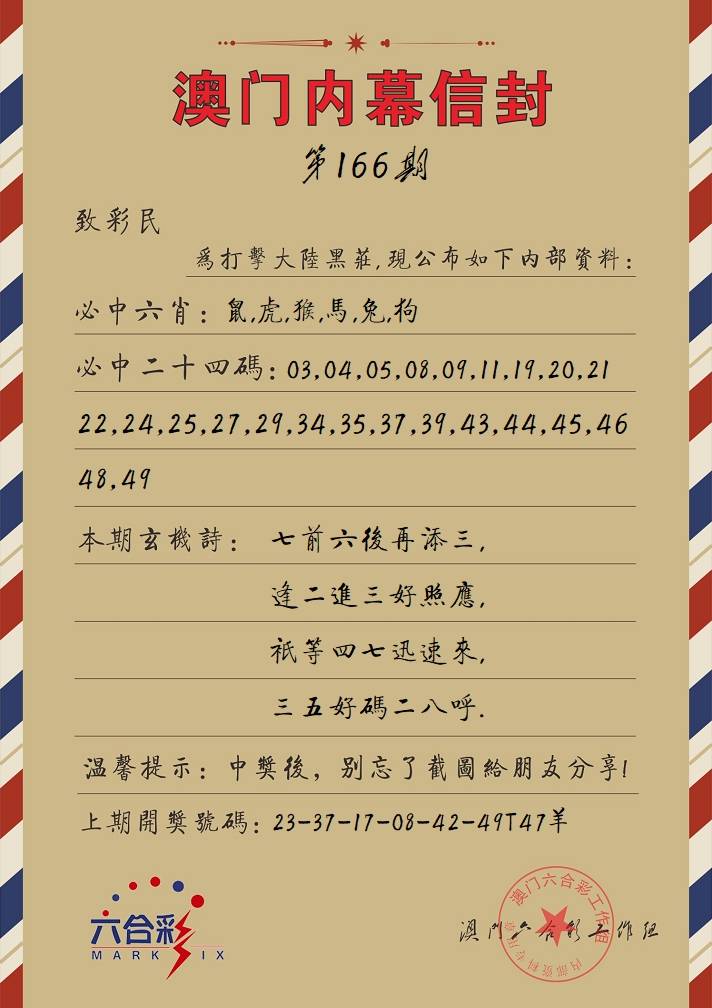 澳门内幕信封
第166期
致彩民
為打擊大陸黑莊,現公布如下内部資料:
必中六肖:鼠,虎,猴,馬,兔,狗
必中二十四碼:03,04,05,08,09,11,19,20,21
22,24,25,27,29,34,35,37,39,43,44,45,46
48,49
本期玄機詩: 七前六後再添三,
逢二進三好照應,
祇等四七迅速來,
三五好碼二八呼.
温馨提示:中獎後,别忘了截圖給朋友分享!
上期開獎號碼:23-37-17-08-42-49T47羊
澳门六合彩工作组
内部资料专用章
六合彩
MARK SIX
澳門六合彩工作组